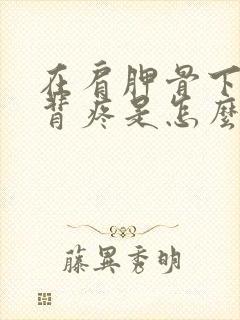 在肩胛骨下
背疼是怎麼
藤異秀明